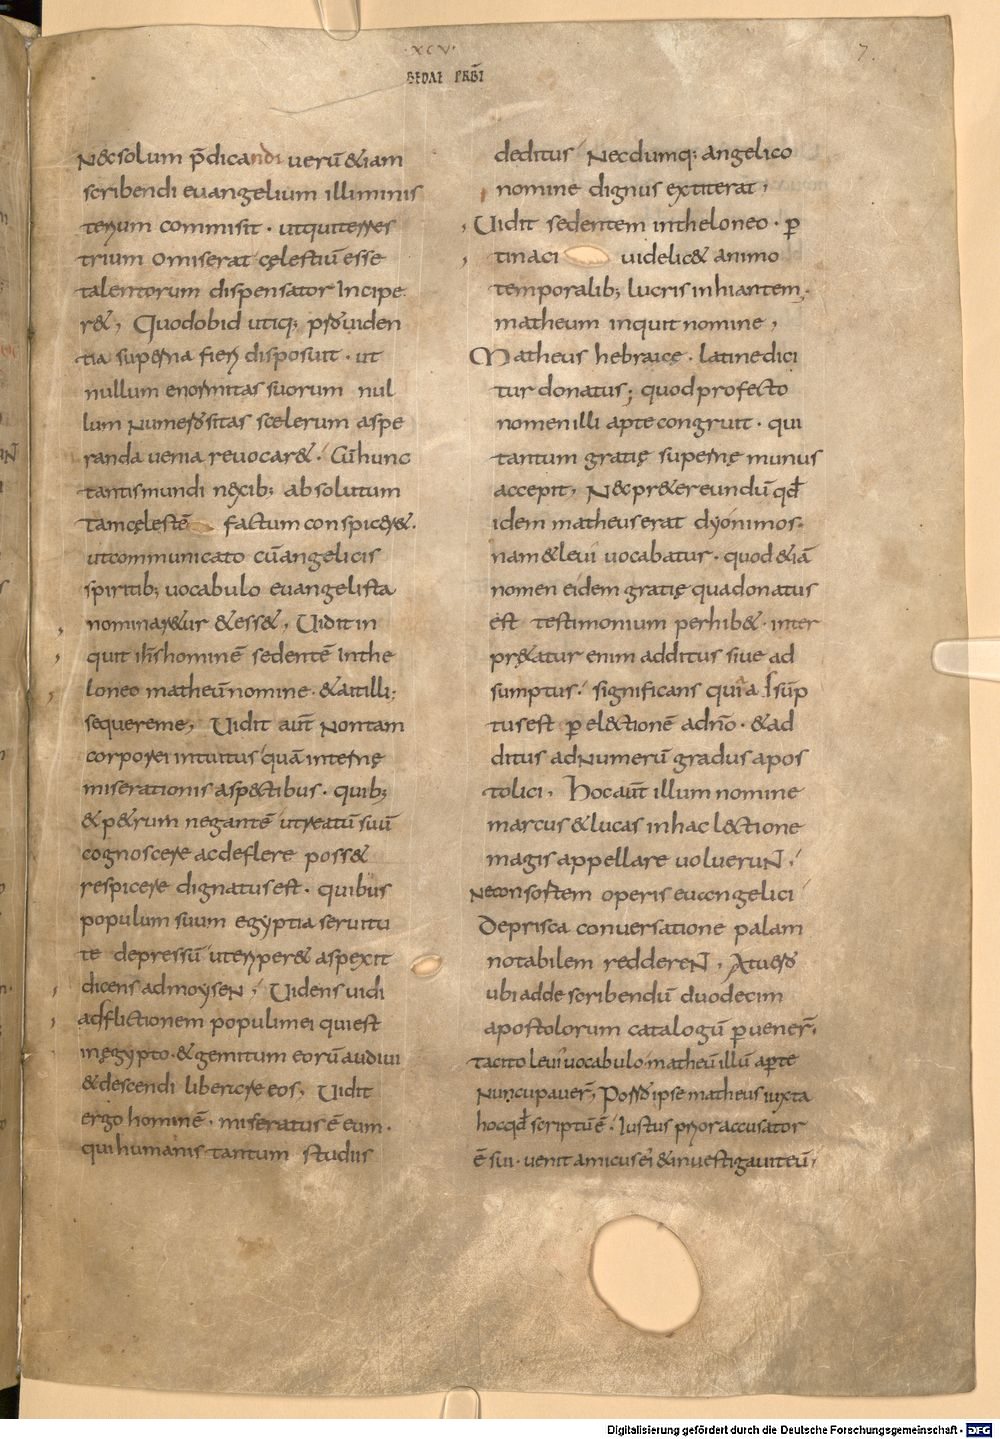 ·XCV·
7.
BEDAE PRBI
N&solum p̄dicandi uerū &iam
scribendi euangelium illiminis
terium commisit · utquiterres
trium omiserat cęlestiū esse
talentorum dispensator Incipe
r&, Quodobid utiq; prouiden
tia superna fieri disposuit · ut
nullum enormitas suorum nul
lum Numerositas scelerum aspe
randa uenia reuocar& · Cū hunc
tantis mundi nexib; absolutum
tam cęlestē factum conspicer&.
utcommunicato cū angelicis
spiritib; uocabulo euangelista
nominar&ur &ess&, Uidit in
quit ih̄s hominē sedentē Inthe
loneo matheū nomine · &ait illi;
sequereme, Uidit aūt Nontam
corporei intuitus quā internę
miserationis asp&tibus · quib;
&p&rum negantē ut reatū suū
cognoscere acdeflere poss&
respicere dignatus est · quibus
populum suum egyptia seruitu
te depressū uteriper& aspexit
dicens admoyseN, Uidens uidi
adflictionem populi mei qui est
inęgypto · &gemitum eorū audiui
&descendi liberare eos, Uidit
ergo hominē · miseratus ē eum ·
qui humanis tantum studiis
deditus Necdumq; angelico
nomine dignus extiterat,
Uidit sedentem intheloneo · p̄
tinaci uidelic& animo
temporalib; lucris inhiantem,
matheum inquit nomine,
Matheus hebraicę · latine dici
tur donatus; quod profecto
nomen illi apte congruit · qui
tantum gratię supernę munus
accepit, N&pr&ereundū qd̄
idem matheus erat dyonimos.
nam &leui uocabatur · quod &iā
nomen eidem gratię qua donatus
est testimonium perhib& · inter
pr&atur enim additus siue ad
sumptus · significans quia Asūp
tus est p̄ el&tionē adn̄o · &ad
ditus adNumerū gradus apos
tolici, Hoc aūt illum nomine
marcus &lucas in hac l&tione
magis appellare uolueruN,
Neconsortem operis euangelici
Deprisca conuersatione palam
notabilem reddereN, Atuero
ubi adde scribendū duodecim
apostolorum catalogū p̄ uener̄.
tacito leui uocabulo matheū illū aperte
Nuncupauer̄, Porro ipse matheus iuxta
hoc qd̄ scriptū ē · Iustus prior accusator
ē sui · uenit amicus ei &inuestigauit eū,
Digitalisierung gefördert durch die Deutsche Forschungsgemeinschaft - DFG